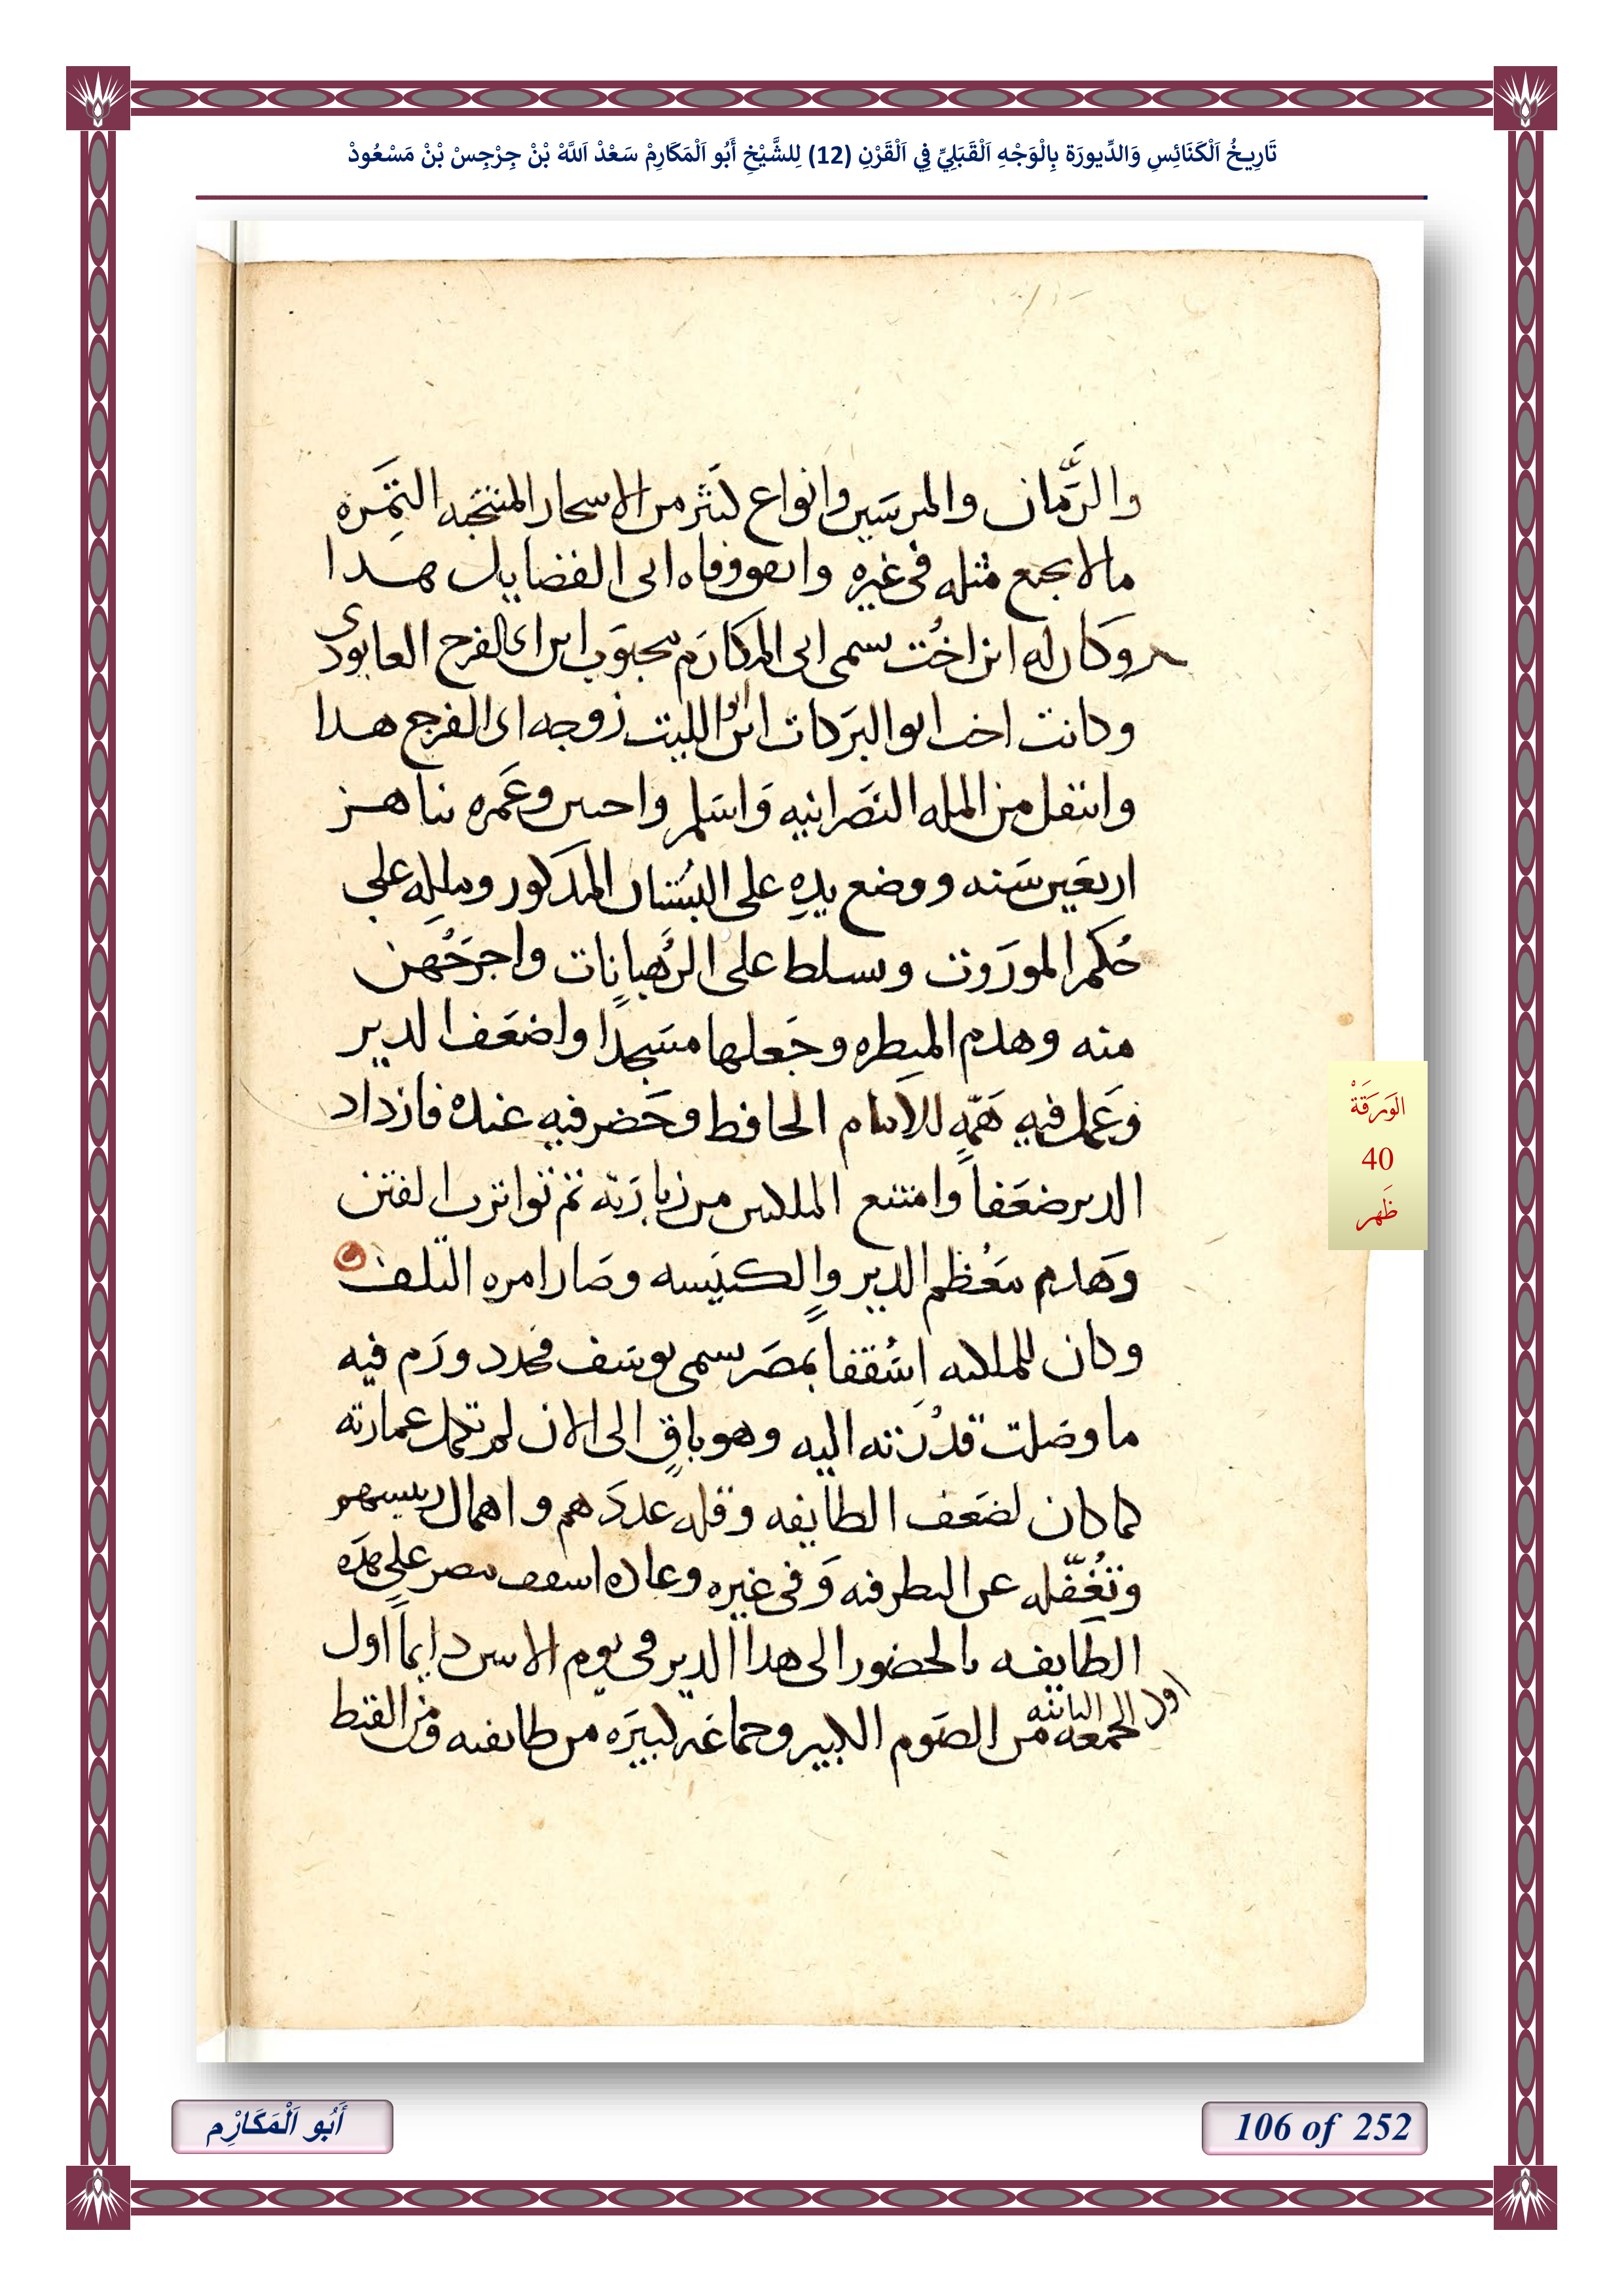 تَارِيخُ اَلْكَنَائِسِ وَالدِّيورَة بِالْوَجْهِ اَلْقَبَلِيِّ فِي اَلْقَرْنِ (12) لِلشَّيْخِ أَبُو اَلْمَكَارِمْ سَعْدْ اَللَّهْ بْنْ جِرْجِسْ بْنْ مَسْعُودْ
والرَّمان والمرسَين وانواع كثير من الاسجار المنتخبه التمِره
مالا يجمع مثله فى غيره واتفق وفاه ابى الفضايل هدا
وكان له ابن اخُت يسمى ابى المكارَم محبوَب ابن ابى الفرج العابودى
وكانت اخت ابو البرَكات ابن ابو الليت زوجه ابى الفرج هدا
وانتقل من المله النصَرانيه وَاسَلم واحسن وعَمره نناهز
اربعَين سَنه ووضع يدهِ على البسُتان المدكور وملكه على
حُكم الموروَت وتسلط على الرُهبانات واخرجَهُن
منه وهدم المنِطره وجَعلها مسَجدًا واضعَف الدير
وعَمل فيهِ هَمّهِ للامام الحافط وحَضر فيهِ عنده فازداد
الدير ضعَفاً وامتنع الملكيين من زيارَته تم تواترت الفتن
وَهدم معُظم الدير والكنيَسه وصَار امره التلف
وكان للملكيه اسُقفاً بمصَر يسمى يوسَف فجدد ورَم فيه
ما وصَلت قدُرَته اليه وهو باقٍ الى الان لم تكمل عمارته
كما كان لضعَف الطايفه وقله عددَهم واهمال رييسهم
وتغُفّله عن النطر فيه وَفى غيره وعاده اسقف مصر على هدَه
الطايفه بالحضور الى هدا الدير فى يوم الاتنين دايماً اول
اول الجمعه التانيه من الصَوم الكبير وجماعَه كبيرَه من طايفته ومن القبط
الوَرَقَةْ
40
ظَهر
أَبُو اَلْمَكَارْم
106 of 252